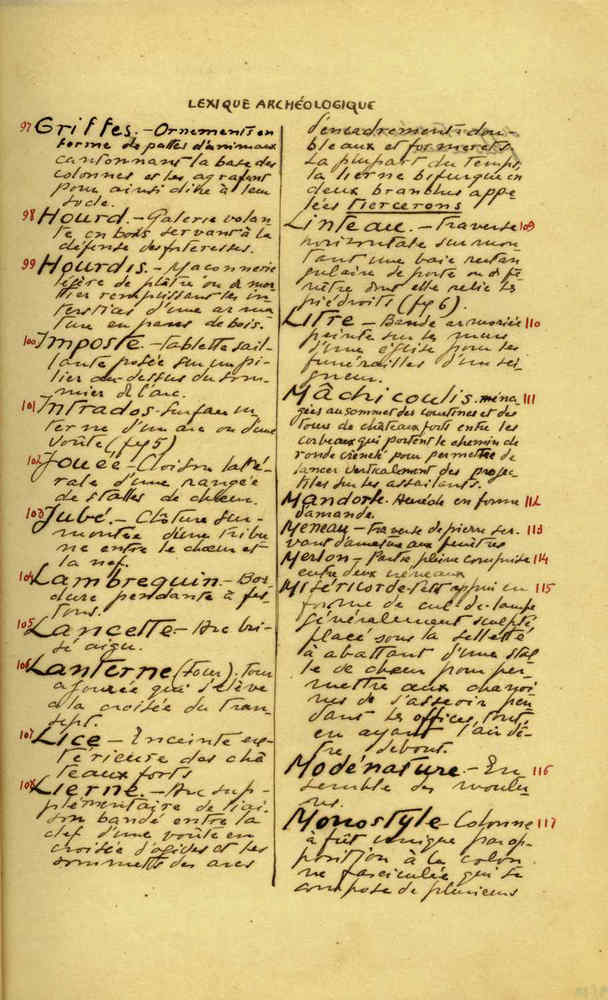 LEXIQUE ARCHÉOLOGIQUE
97 Griffes. - Ornement en
forme de pattes d'animaux
cantonnant la base des
colonnes et les agrafant
pour ainsi dire à leur
socle.
98 Hourd. - Galerie volan
te, en bois servant à la
défense des forteresses.
99 Hourdis. - Maçonnerie
légère de plâtre ou de mor
tier remplissant les in
terstices d'une arma
ture en pans de bois.
100 Imposte. - Tablette sail-
lante posée sur un pi-
lier au-dessus du som-
mier de l'arc.
101 Intrados - Surface in
terne d'un arc ou d'une
voûte (fig 5)
102 Jouée - Cloison laté-
rale d'une rangée
de stalles de chœur.
103 Jubé. - Clôture sur-
montée d'une tribu
ne entre le chœur et
la nef.
104 Lambrequin. - Bor
dure pendante à fes
tons.
105 Lancette - Arc bri-
sé aigu.
106 Lanterne (Tour). Tour
ajourée qui s'élève
à la croisée du tran
sept.
107 Lice - Enceinte ex-
térieure des châ
teaux forts
108 Lierne. - Arc sup-
plémentaire de liai-
son bandé entre la
clef d'une voûte en
croisée d'ogives et les
sommets des arcs
d'encadrement: dou-
bleaux et formerets.
La plupart du temps,
la lierne bifurque en
deux branches appe
lées Tiercerons
Linteau. - Traverse 109
horizontale surmon
tant une baie rectan
gulaire de porte ou de fe
nêtre dont elle relie les
piédroits (fig 6).
Litre - Bande armoriée 110
peinte sur les murs
d'une église pour les
funérailles d'un sei
gneur.
Mâchicoulis. ména 111
gées au sommet des courtines et des
tours de châteaux forts entre les
corbeaux qui portent le chemin de
ronde crénelé pour permettre de
lancer verticalement des projec
tiles sur les assaillants.
Mandorle. Auréole en forme 112
d'amande.
Meneau - Traverse de pierre ser 113
vant d'armature aux fenêtres
Merlon - Partie pleine comprise 114
entre deux créneaux
Miséricorde. Petit appui en 115
forme de cul-de-lampe
généralement sculpté,
placé sous la sellette
à abattant d'une stal
le de chœur pour per-
mettre aux chanoi
nes de s'asseoir peu
dans les offices, tout
en ayant l'air d'ê-
tre debout.
Modénature. - En 116
semble des moulu
res.
Monostyle - Colonne 117
à fût unique par op-
position à la colon
ne fasciculée qui se
compose de plusieurs